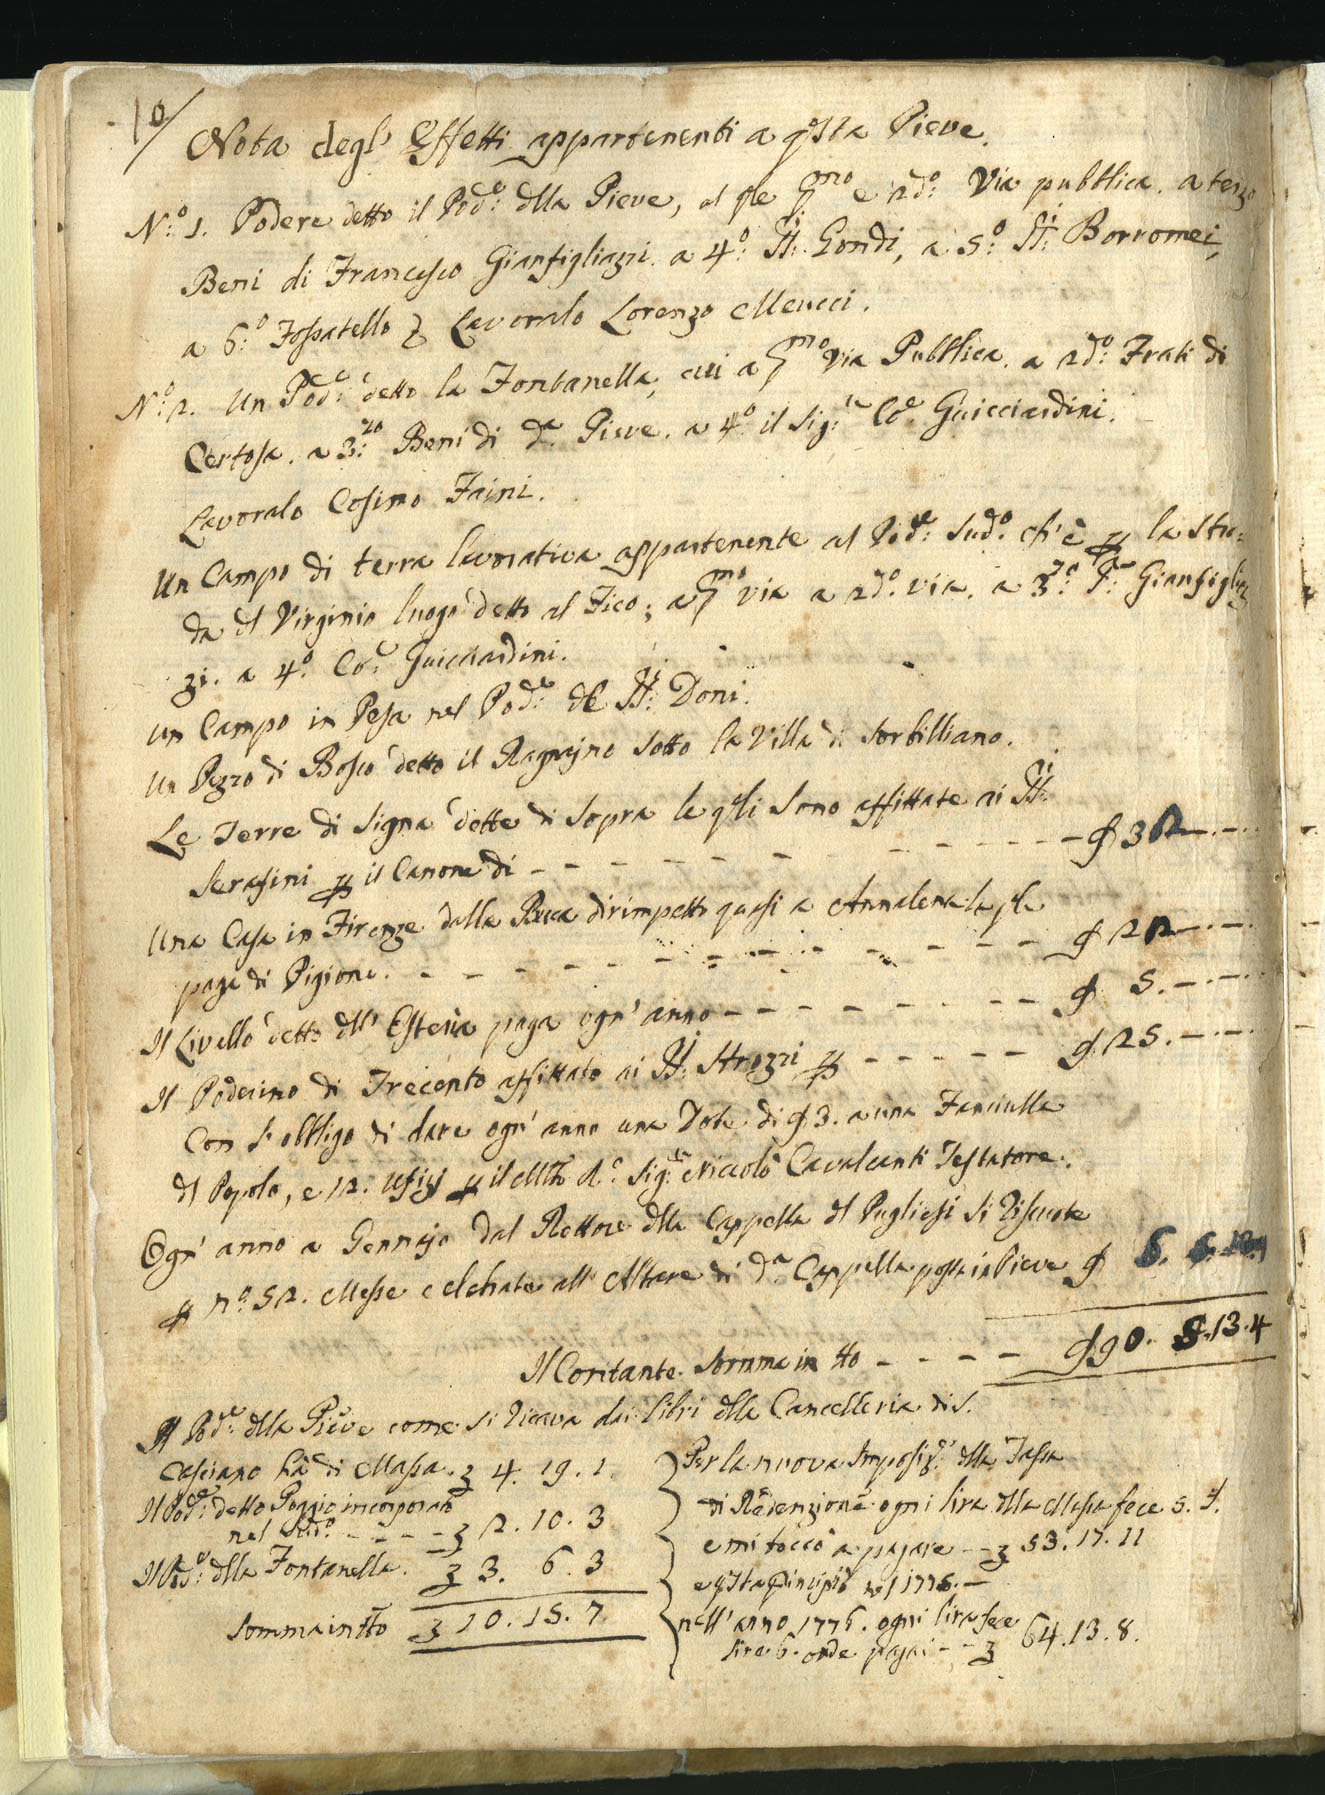 10/
Nota degl' Effetti appartenenti a q.sta Pieve.
N.o 1. Podere detto il Pod.e dlla Pieve, al qle p.mo e 2do. Via pubblica. a terzo
Beni di Francesco Gianfigliazzi. a 4.o SS.i Gondi, a 5.o SS.i Borromei,
a 6.o Fossatello Lavoralo Lorenzo Meucci.
N.o 2. Un Pod.e detto la Fontanella, cui a p.mo via Pubblica. a 2do. Frati di
Certosa. a 3.zo Beni di d.a Pieve. a 4.o il Sig.re Co.e Guicciardini.
Lavoralo Cosimo Faini.
Un Campo di terra lavorativa appartenente al Pod.e Sud.o ch'è p la Stra=
da dl Virginio luogo detto al Fico; a p.mo via a 2do. via. a 3.zo Gianfigliaz
zi. a 4.o Co.e Guicciardini.
Un Campo in Pesa nel Pod.e de SS.i Doni.
Un Pezzo di Bosco detto il Ragnajno Sotto la Villa di Sorbilliano.
Le Terre di Signa dette di Sopra le q.li Sono affittate ai SS.i
Serafini p il Canone di - - - - - - - - - - 32. - . -
Una Casa in Firenze dalla Buca dirimpetto quasi a Annalena la qle
paga di Pigione. - - - - - - - - - - 22. - . -
Il Livello detto dll' Osteria paga ogn' anno - - - - - - - 5. - . -
Il Poderino di Trecento affittato ai SS.i Strozzi p - - - - - 25. - . -
Con l' obbligo di dare ogn' anno una Dote di 3. a una Fanciulla
dl Popolo, e 12. Ufizj p il Sig.re Niccolò Cavalcanti Testatore.
Ogn' anno a Gennajo dal Rettore dlla Cappella dl Pugliesi Si riscuote
p n.o 52. Messe celebrate all' Altare di d.a Cappella posta in Pieve 6.
Il Contante. Somma in tto - - - - 90. 5. 13. 4
Il Pod.e dlla Pieve come si ricava dai Libri dlla Cancelleria di S.
Casciano hà di Massa. 4. 19. 1.
Il Pod.e detto Poggio incorporato
nel Sud.o - - - - 2. 10. 3
Il Pod.e dlla Fontanella. 3. 6. 3
Somma in tto 10. 15. 7
Per la nuova Imposiz.e dlla Tassa
di Redenzione ogni lira dlla Massa fece 5.
e mi toccò a pagare -- 53. 17. 11
e q.sta principiò nel 1775. -
nell' anno 1776. ogni lira fece
lire 6. onde pagai - - 64. 13. 8.